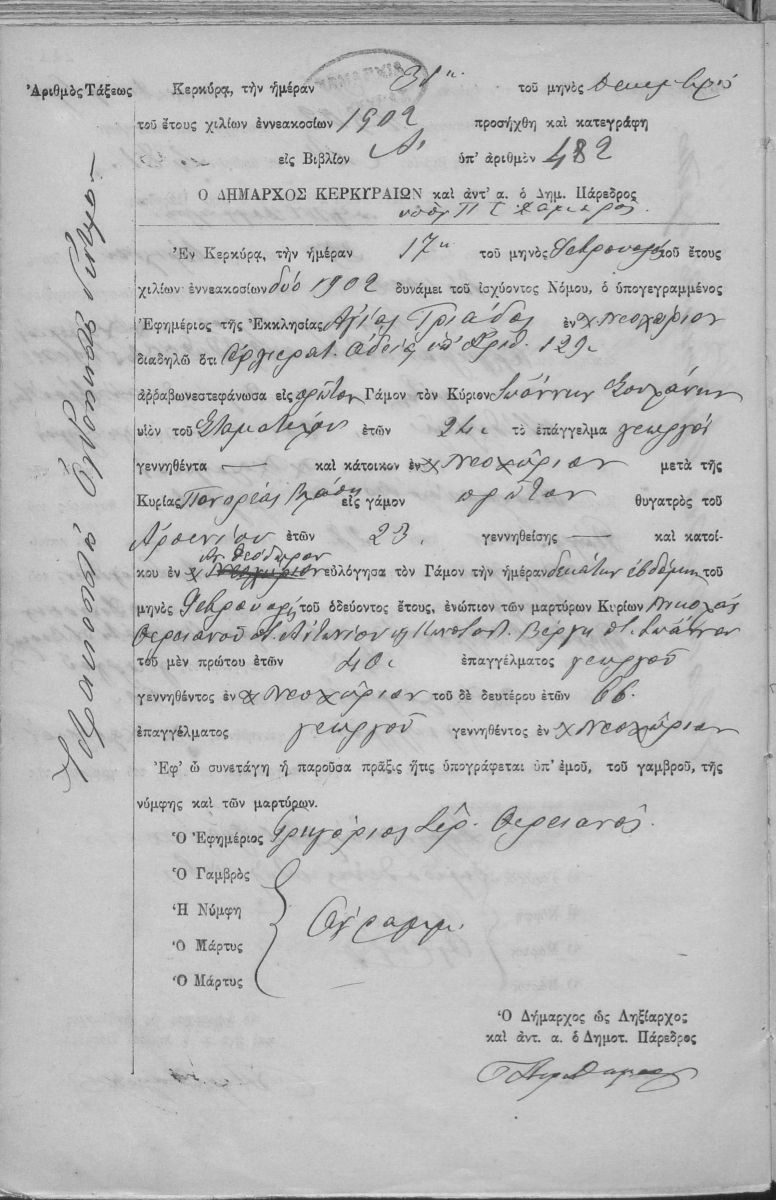 Ἀριθμὸς Τάξεως
Κερκύρᾳ, τὴν ἡμέραν 31 τοῦ μηνὸς Δεκεμβρίου
τοῦ ἔτους χιλίων ἐννεακοσίων 1902 προσήχθη καὶ κατεγράφη
εἰς Βιβλίον Α' ὑπ' ἀριθμὸν 482
Ο ΔΗΜΑΡΧΟΣ ΚΕΡΚΥΡΑΙΩΝ καὶ ἀντ' α. ὁ Δημ. Πάρεδρος
Ἐν Κερκύρᾳ, τὴν ἡμέραν 17 τοῦ μηνὸς Φεβρουαρίου τοῦ ἔτους
χιλίων ἐννεακοσίων δύο 1902 δυνάμει τοῦ ἰσχύοντος Νόμου, ὁ ὑπογεγραμμένος
Ἐφημέριος τῆς Ἐκκλησίας Ἁγίας Τριάδος ἐν χ Νεοχώριον
διαδηλῶ ὅτι Ἀρχιερατ. ἀδείᾳ ὑπ' ἀριθ. 129
ἀρραβωνεστεφάνωσα εἰς πρῶτον Γάμον τὸν Κύριον Ἰωάννην
υἱὸν τοῦ Σταματίου ἐτῶν 24 τὸ ἐπάγγελμα γεωργοῦ
γεννηθέντα — καὶ κάτοικον ἐν χ Νεοχώριον μετὰ τῆς
Κυρίας εἰς γάμον πρῶτον θυγατρὸς τοῦ
Ἀρσενίου ἐτῶν 23. γεννηθείσης — καὶ κατοί-
Ἁγ. Θεόδωρον
κου ἐν χ Νεοχώριον εὐλόγησα τὸν Γάμον τὴν ἡμέραν δεκάτην ἑβδόμην τοῦ
μηνὸς Φεβρουαρίου τοῦ ὁδεύοντος ἔτους, ἐνώπιον τῶν μαρτύρων Κυρίων
Θερειανοῦ Ἀντωνίου Βέργη Ἰωάννου
τοῦ μὲν πρώτου ἐτῶν 40 ἐπαγγέλματος γεωργοῦ
γεννηθέντος ἐν χ Νεοχώριον τοῦ δὲ δευτέρου ἐτῶν 66.
ἐπαγγέλματος γεωργοῦ γεννηθέντος ἐν χ Νεοχώριον
Ἐφ' ᾧ συνετάγη ἡ παροῦσα πρᾶξις ἥτις ὑπογράφεται ὑπ' ἐμοῦ, τοῦ γαμβροῦ, τῆς
νύμφης καὶ τῶν μαρτύρων.
Ὁ Ἐφημέριος Γρηγόριος Ἱερ. Θερειανός.
Ὁ Γαμβρὸς
Ἡ Νύμφη
Ἀγράμμ.
Ὁ Μάρτυς
Ὁ Μάρτυς
Ὁ Δήμαρχος ὡς Ληξίαρχος
καὶ ἀντ. α. ὁ Δημοτ. Πάρεδρος